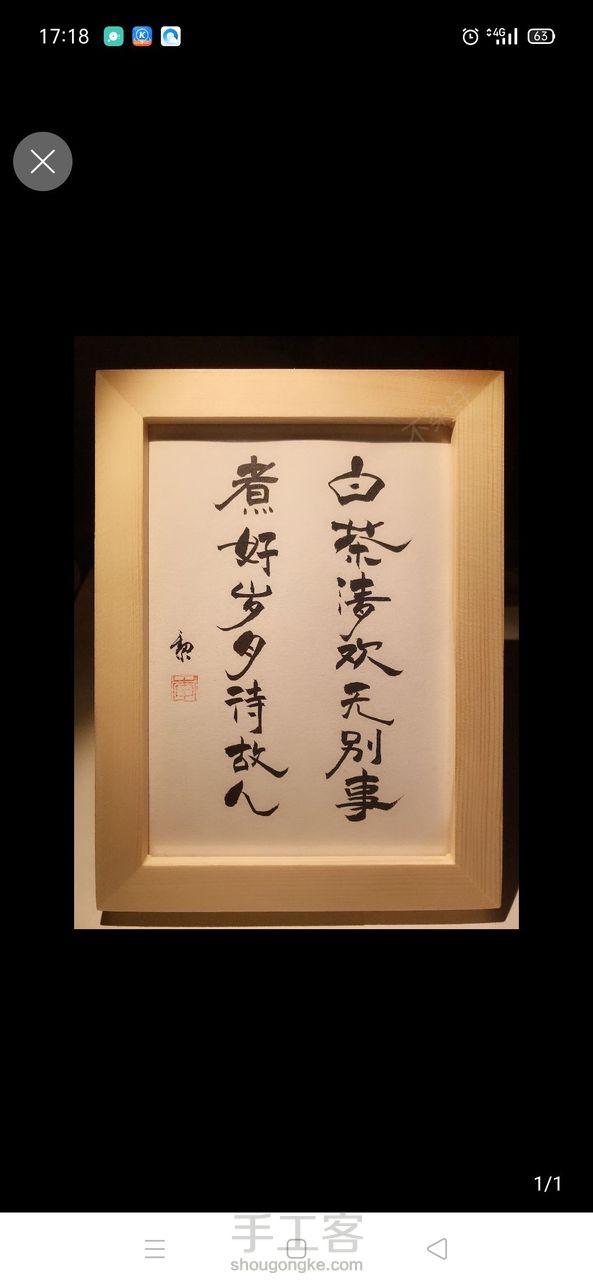 17:18
4G
63
白茶清欢无别事
煮好岁夕待故人
黎
1/1
手工客
shougongke.com